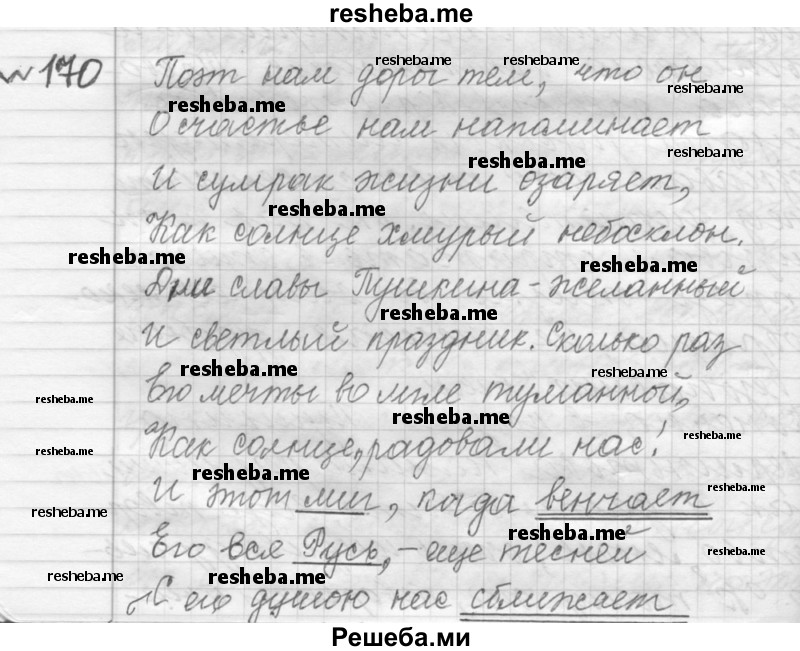 resheba.me
№170 Поэт нам дорог тем, что он
О счастье нам напоминает
И сумрак жизни озаряет,
Как солнце хмурый небосклон.
Дни славы Пушкина - желанный
И светлый праздник. Сколько раз
Его мечты во мгле туманной,
Как солнце, радовали нас!
И этот миг, когда венчает
Его вся Русь, - еще тесней
С его душою нас сближает
Решеба.ми